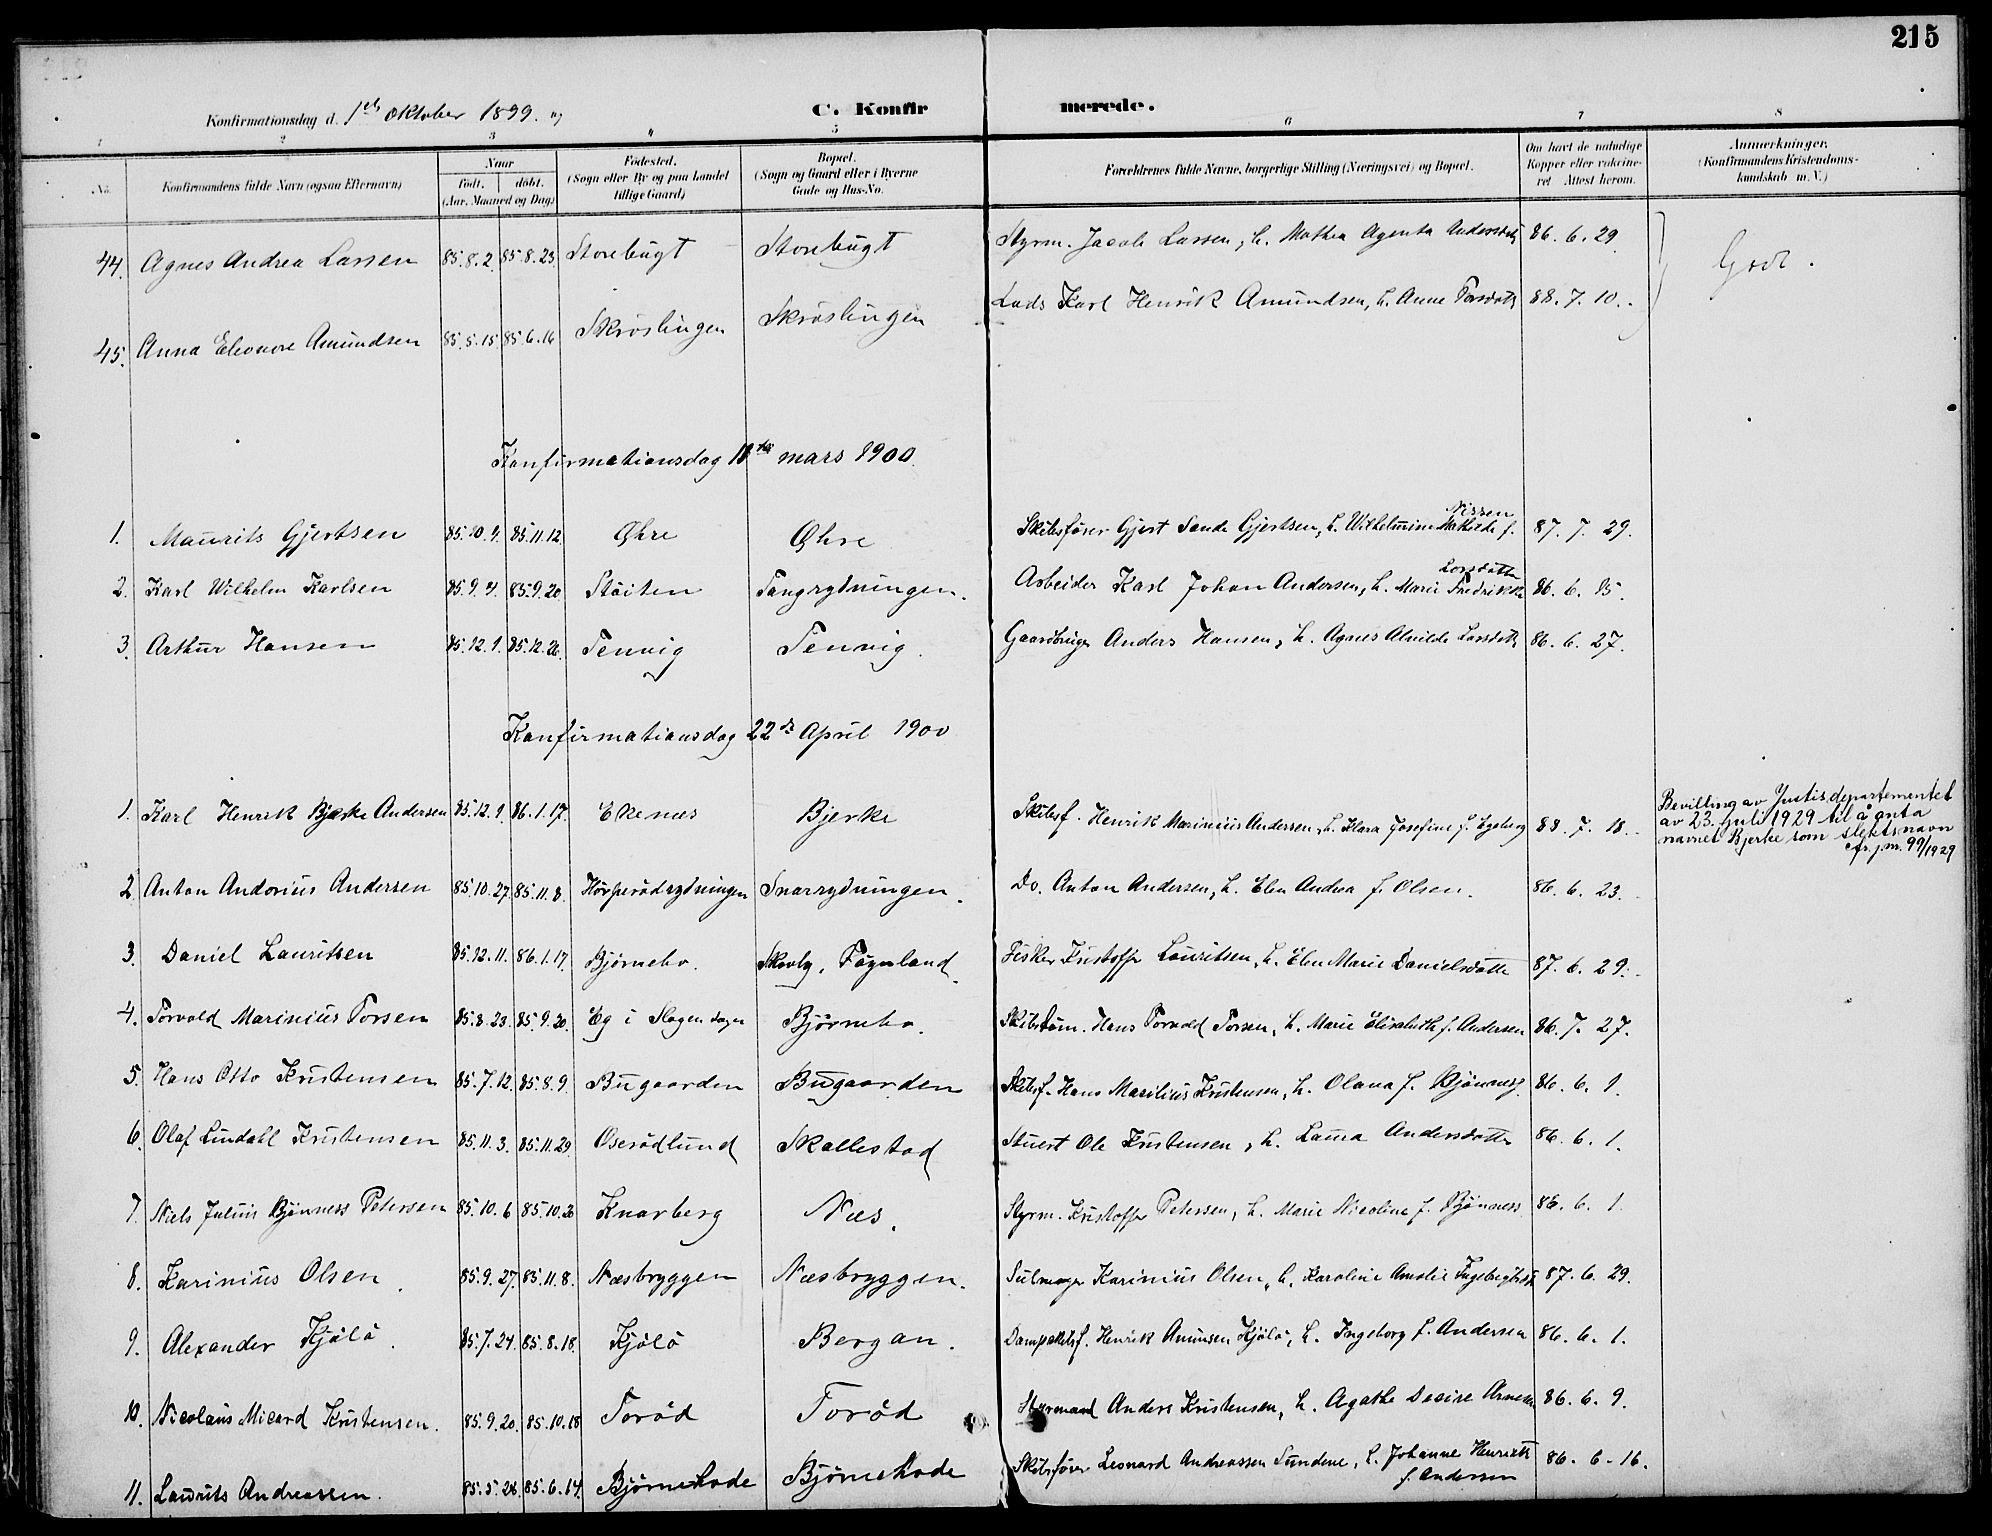 215
Konfirmationsdag d. 1ste Oktober 1899.
C. Konfirmerede.
1 2 3 4 5 6 7 8
No. Konfirmandens fulde Navn (ogsaa Efternavn) Naar født. døbt. (Aar, Maaned og Dag) Fødested. (Sogn eller By og paa Landet tillige Gaard) Bopæl. (Sogn og Gaard eller i Byerne Gade og Hus-No. Forældrenes fulde Navne, borgerlige Stilling (Næringsvei) og Bopæl. Om havt de naturlige Kopper eller vaccineret Attest herom. Anmerkninger. (Konfirmandens Kristendomskundskab m. V.)
44. Agnes Andrea Larsen 85.8.2. 85.8.23. Storebugt Storebugt Styrm. Jacob Larsen, h. Mathea Agenta Andersdtr 86.6.29. Godt.
45. Anna Eleonore Amundsen 85.5.15 85.6.14 Skrøslingen Skrøslingen Lods Karl Henrik Amundsen, h. Anne Torsdatt 88.7.10.
Konfirmationsdag 18de mars 1900.
1. Maurits Gjertsen 85.10.4. 85.11.12. Øhre Øhre Skibsfører Gjert Sande Gjertsen, h. Wilhelmine Mathilde f. Nissen 87.7.29.
2. Karl Wilhelm Karlsen 85.9.4. 85.9.20 Støiten Tangrydningen. Arbeider Karl Johan Andersen, h. Marie Fredrikke Larsdatter 86.6.15.
3. Arthur Hansen 85.12.1. 85.12.26. Tenvig Tenvig. Gaardbruger Anders Hansen, h. Agnes Alvilde Larsdatt 86.6.27.
Konfirmationsdag 22de April 1900
1. Karl Henrik Bjerke Andersen 85.12.9. 86.1.17. Ekenes Bjerke Skibsf. Henrik Marinius Andersen, h. Klara Josefine f. Egeberg 88.7.18. Bevilling av Justisdepartementet
av 23. juli 1929 til å anta
navnet Bjerke som slektsnavn
cfr. j.nr. 99/1929
2 Anton Andorius Andersen 85.10.27. 85.11.8. Hørperødrydningen Snarrydningen. Do. Anton Andersen, h. Elen Andrea f. Olsen. 86.6.23.
3. Daniel Lauritsen 85.12.11. 86.1.17. Bjørnebo. Skovly, Føynland. Fisker Kristoffer Lauritsen, h. Elen Marie Danielsdatter 87.6.29.
4. Torvald Marinius Torsen 85.8.23. 85.9.20. Eg i Slagen sogn Bjørnebo. Skibstøm. Hans Torvald Torsen, h. Marie Elisabeth f. Andersen 86.7.27.
5. Hans Otto Kristensen 85.7.12. 85.8.9. Bugaarden Bugaarden Skibsf. Hans Marilius Kristensen, h. Olava f. Bjønness 86.6.1
6. Olaf Lindahl Kristensen 85.11.3. 85.11.29. Oserødlund Skallestad Stuert Ole Kristensen, h. Laura Andersdatter 86.6.1.
7. Niels Julius Bjønness Petersen 85.10.6 85.10.26 Knarberg Næs. Styrm. Kristoffer Petersen, h. Marie Nicoline f. Bjønness. 86.6.1.
8. Karinius Olsen 85.9.27. 85.11.8. Næsbryggen Næsbryggen. Karinius Olsen, h. Karoline Amalie 87.6.29.
9. Alexander Kjølø 85.7.24. 85.8.18. Kjølø Bergan. Dampskibsf. Henrik Amunsen Kjølø, h. Ingeborg f. Andersen 86.6.1.
10. Nicolaus Micard Kristensen. 85.9.20. 85.10.18 Torød Torød Styrmand Anders Kristensen, h. Agathe Desire 86.6.9.
11. Laurits Andreassen. 85.5.26. 85.6.14. Bjørneskode Bjørneskode Skibsfører Leonard Andreassen Sundene, h. Johanne Henriette f. Andersen 86.6.16.